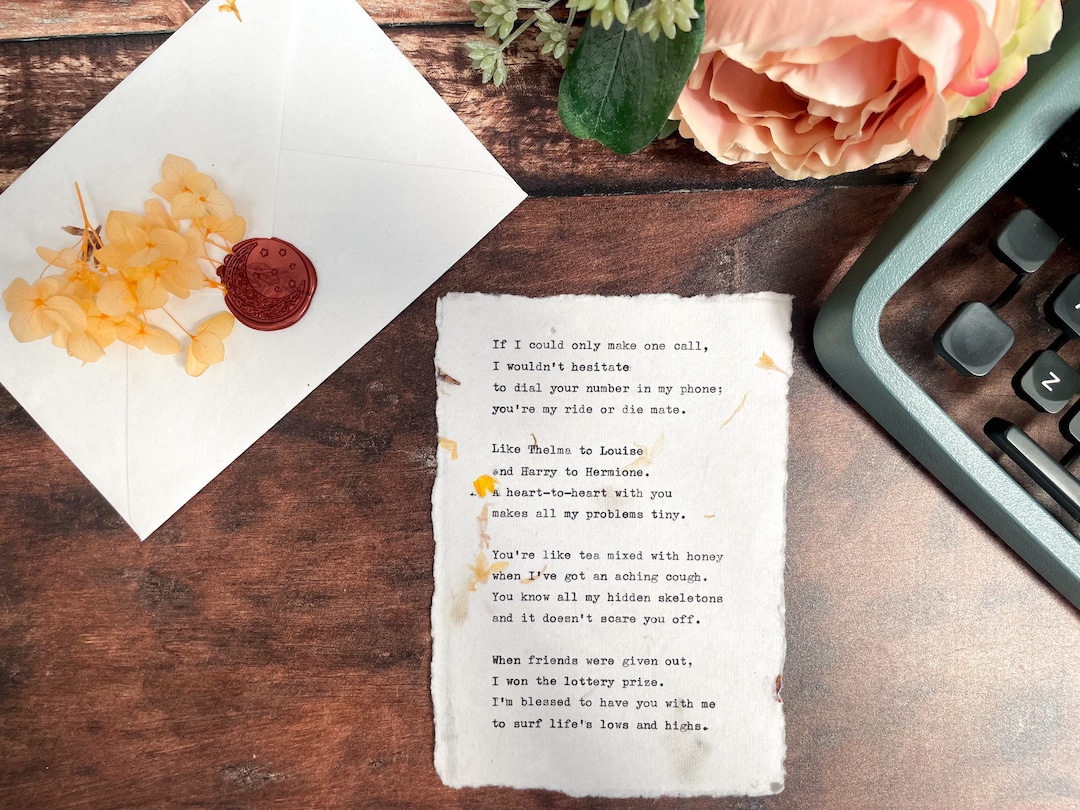 If I could only make one call,
I wouldn't hesitate
to dial your number in my phone;
you're my ride or die mate.
Like Thelma to Louise
and Harry to Hermione.
A heart-to-heart with you
makes all my problems tiny.
You're like tea mixed with honey
when I've got an aching cough.
You know all my hidden skeletons
and it doesn't scare you off.
When friends were given out,
I won the lottery prize.
I'm blessed to have you with me
to surf life's lows and highs.
Z